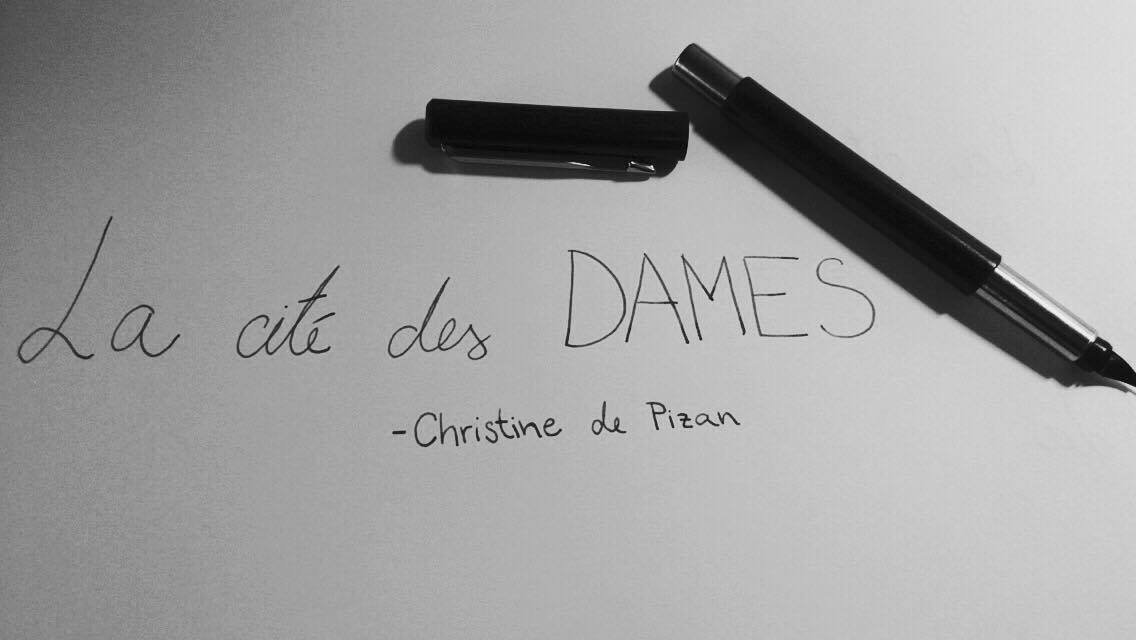 La cité des DAMES
-Christine de Pizan